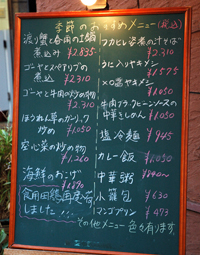 季節のおすすめメニュー(税込)
渡り蟹と春雨の土鍋
煮込み ¥2.835
ゴーヤとスペアリブの
煮込み ¥2.310
ゴーヤと牛肉の炒め物
¥2.310
ほうれん草のガーリック
炒め ¥1.050
空心菜の炒め物
¥1.260
海鮮のおこげ
¥1.890
食用田鶏再入荷
しました!!
フカヒレ姿煮の汁そば
¥2.310
うに入りヤキメシ
¥1.575
ヤキメシ
¥1.050
牛肉ブラックビーンソースの
中華きしめん ¥1.050
塩冷麺 ¥945
カレー飯 ¥1.050
中華粥 ¥840~
小籠包 ¥630
マンゴプリン ¥473
その他メニュー色々有ります。